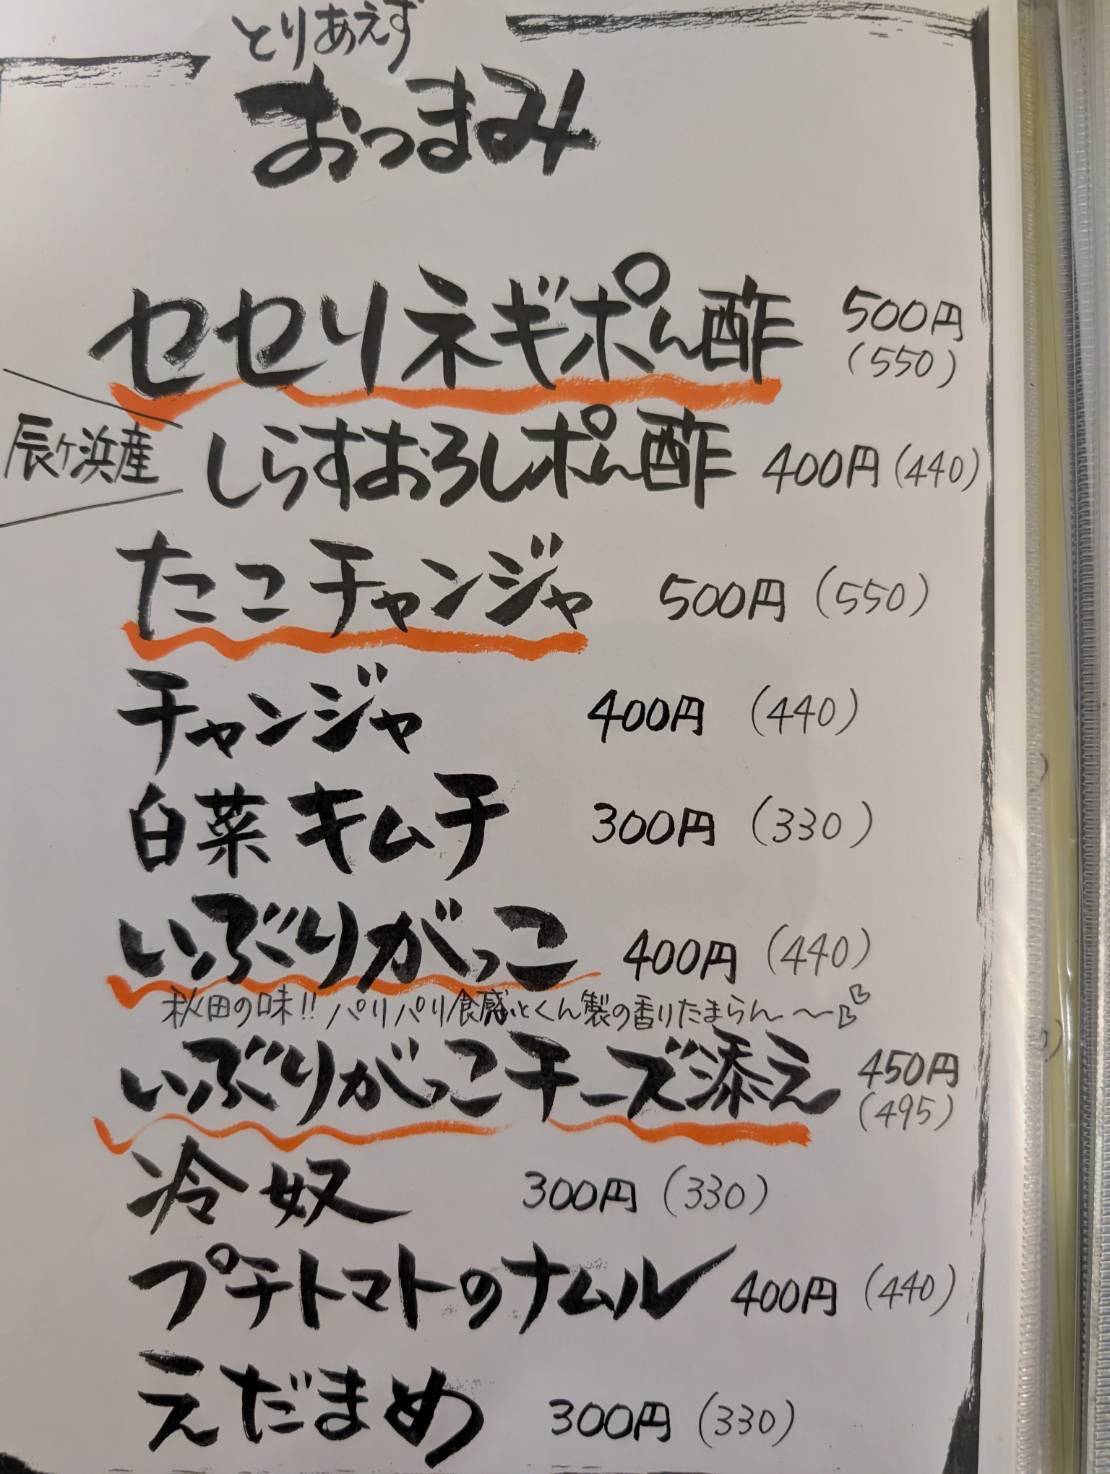 とりあえず
おつまみ
セセリネギポん酢 500円
(550)
辰ヶ浜産 しらすおろしポん酢 400円(440)
たこチャンジャ 500円(550)
チャンジャ 400円(440)
白菜キムチ 300円(330)
いぶりがっこ 400円(440)
秋田の味!! パリパリ食感とくん製の香りたまらん〜
いぶりがっこチーズ添え 450円
(495)
冷奴 300円(330)
プチトマトのナムル 400円(440)
えだまめ 300円(330)